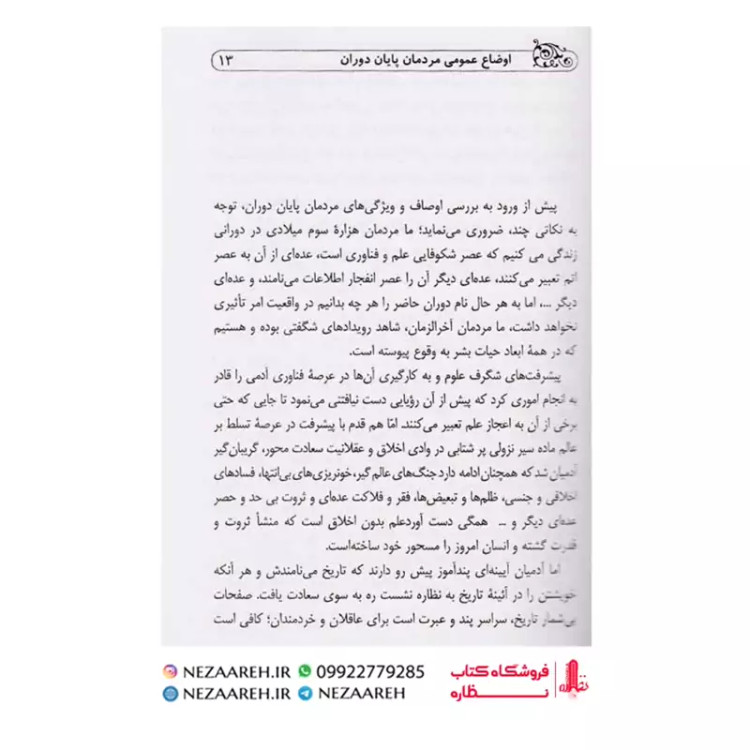 اوضاع عمومی مردمان پایان دوران ۱۳
پیش از ورود به بررسی اوصاف و ویژگی‌های مردمان پایان دوران، توجه
به نکاتی چند، ضروری می‌نماید؛ ما مردمان هزارهٔ سوم میلادی در دورانی
زندگی می کنیم که عصر شکوفایی علم و فناوری است، عده‌ای از آن به عصر
اتم تعبیر می‌کنند، عده‌ای دیگر آن را عصر انفجار اطلاعات می‌نامند، و عده‌ای
دیگر ...، اما به هر حال نام دوران حاضر را هر چه بدانیم در واقعیت امر تأثیری
نخواهد داشت، ما مردمان آخرالزمان، شاهد رویدادهای شگفتی بوده و هستیم
که در همهٔ ابعاد حیات بشر به وقوع پیوسته است.
پیشرفت‌های شگرف علوم و به کارگیری آن‌ها در عرصهٔ فناوری آدمی را قادر
به انجام اموری کرد که پیش از آن رؤیایی دست نیافتنی می‌نمود تا جایی که حتی
برخی از آن به اعجاز علم تعبیر می‌کنند. امّا هم قدم با پیشرفت در عرصهٔ تسلط بر
عالم ماده سیر نزولی پر شتابی در وادی اخلاق و عقلانیت سعادت محور، گریبان‌گیر
آدمیان شد که همچنان ادامه دارد جنگ‌های عالم گیر، خونریزی‌های بی‌انتها، فسادهای
اخلاقی و جنسی، ظلم‌ها و تبعیض‌ها، فقر و فلاکت عده‌ای و ثروت بی حد و حصر
عده‌ای دیگر و ... همگی دست آوردعلم بدون اخلاق است که منشأ ثروت و
قدرت گشته و انسان امروز را مسحور خود ساخته‌است.
اما آدمیان آیینه‌ای پندآموز پیش رو دارند که تاریخ می‌نامندش و هر آنکه
خویشتن را در آئینهٔ تاریخ به نظاره نشست ره به سوی سعادت یافت. صفحات
بی‌شمار تاریخ، سراسر پند و عبرت است برای عاقلان و خردمندان؛ کافی است
فروشگاه کتاب
نظاره
NEZAAREH.IR 09922779285
NEZAAREH.IR NEZAAREH